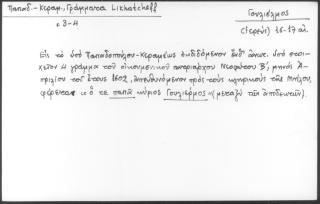 Παπαδ.-Κεραμ., Γράμματα Likhatcheff
σ. 3-4
Γουλιέλμος
(Ἱερεύς) 16-17 αἰ.
Εἰς τὸ ὑπὸ Παπαδοπούλου-Κεραμέως ἐκδιδόμενον
4 γράμμα τοῦ οἰκουμενικοῦ πατριάρχου Νεοφύτου Β', μηνὸς Ἀ-
πριλίου τοῦ ἔτους 1602, ἀπευθυνόμενον πρὸς τοὺς κληρικοὺς τῆς Μήλου,
φέρεται κ. ὁ τε παπᾶ κύριος Γουλιέρμος (μεταξὺ τῶν ἀποδεκτῶν).